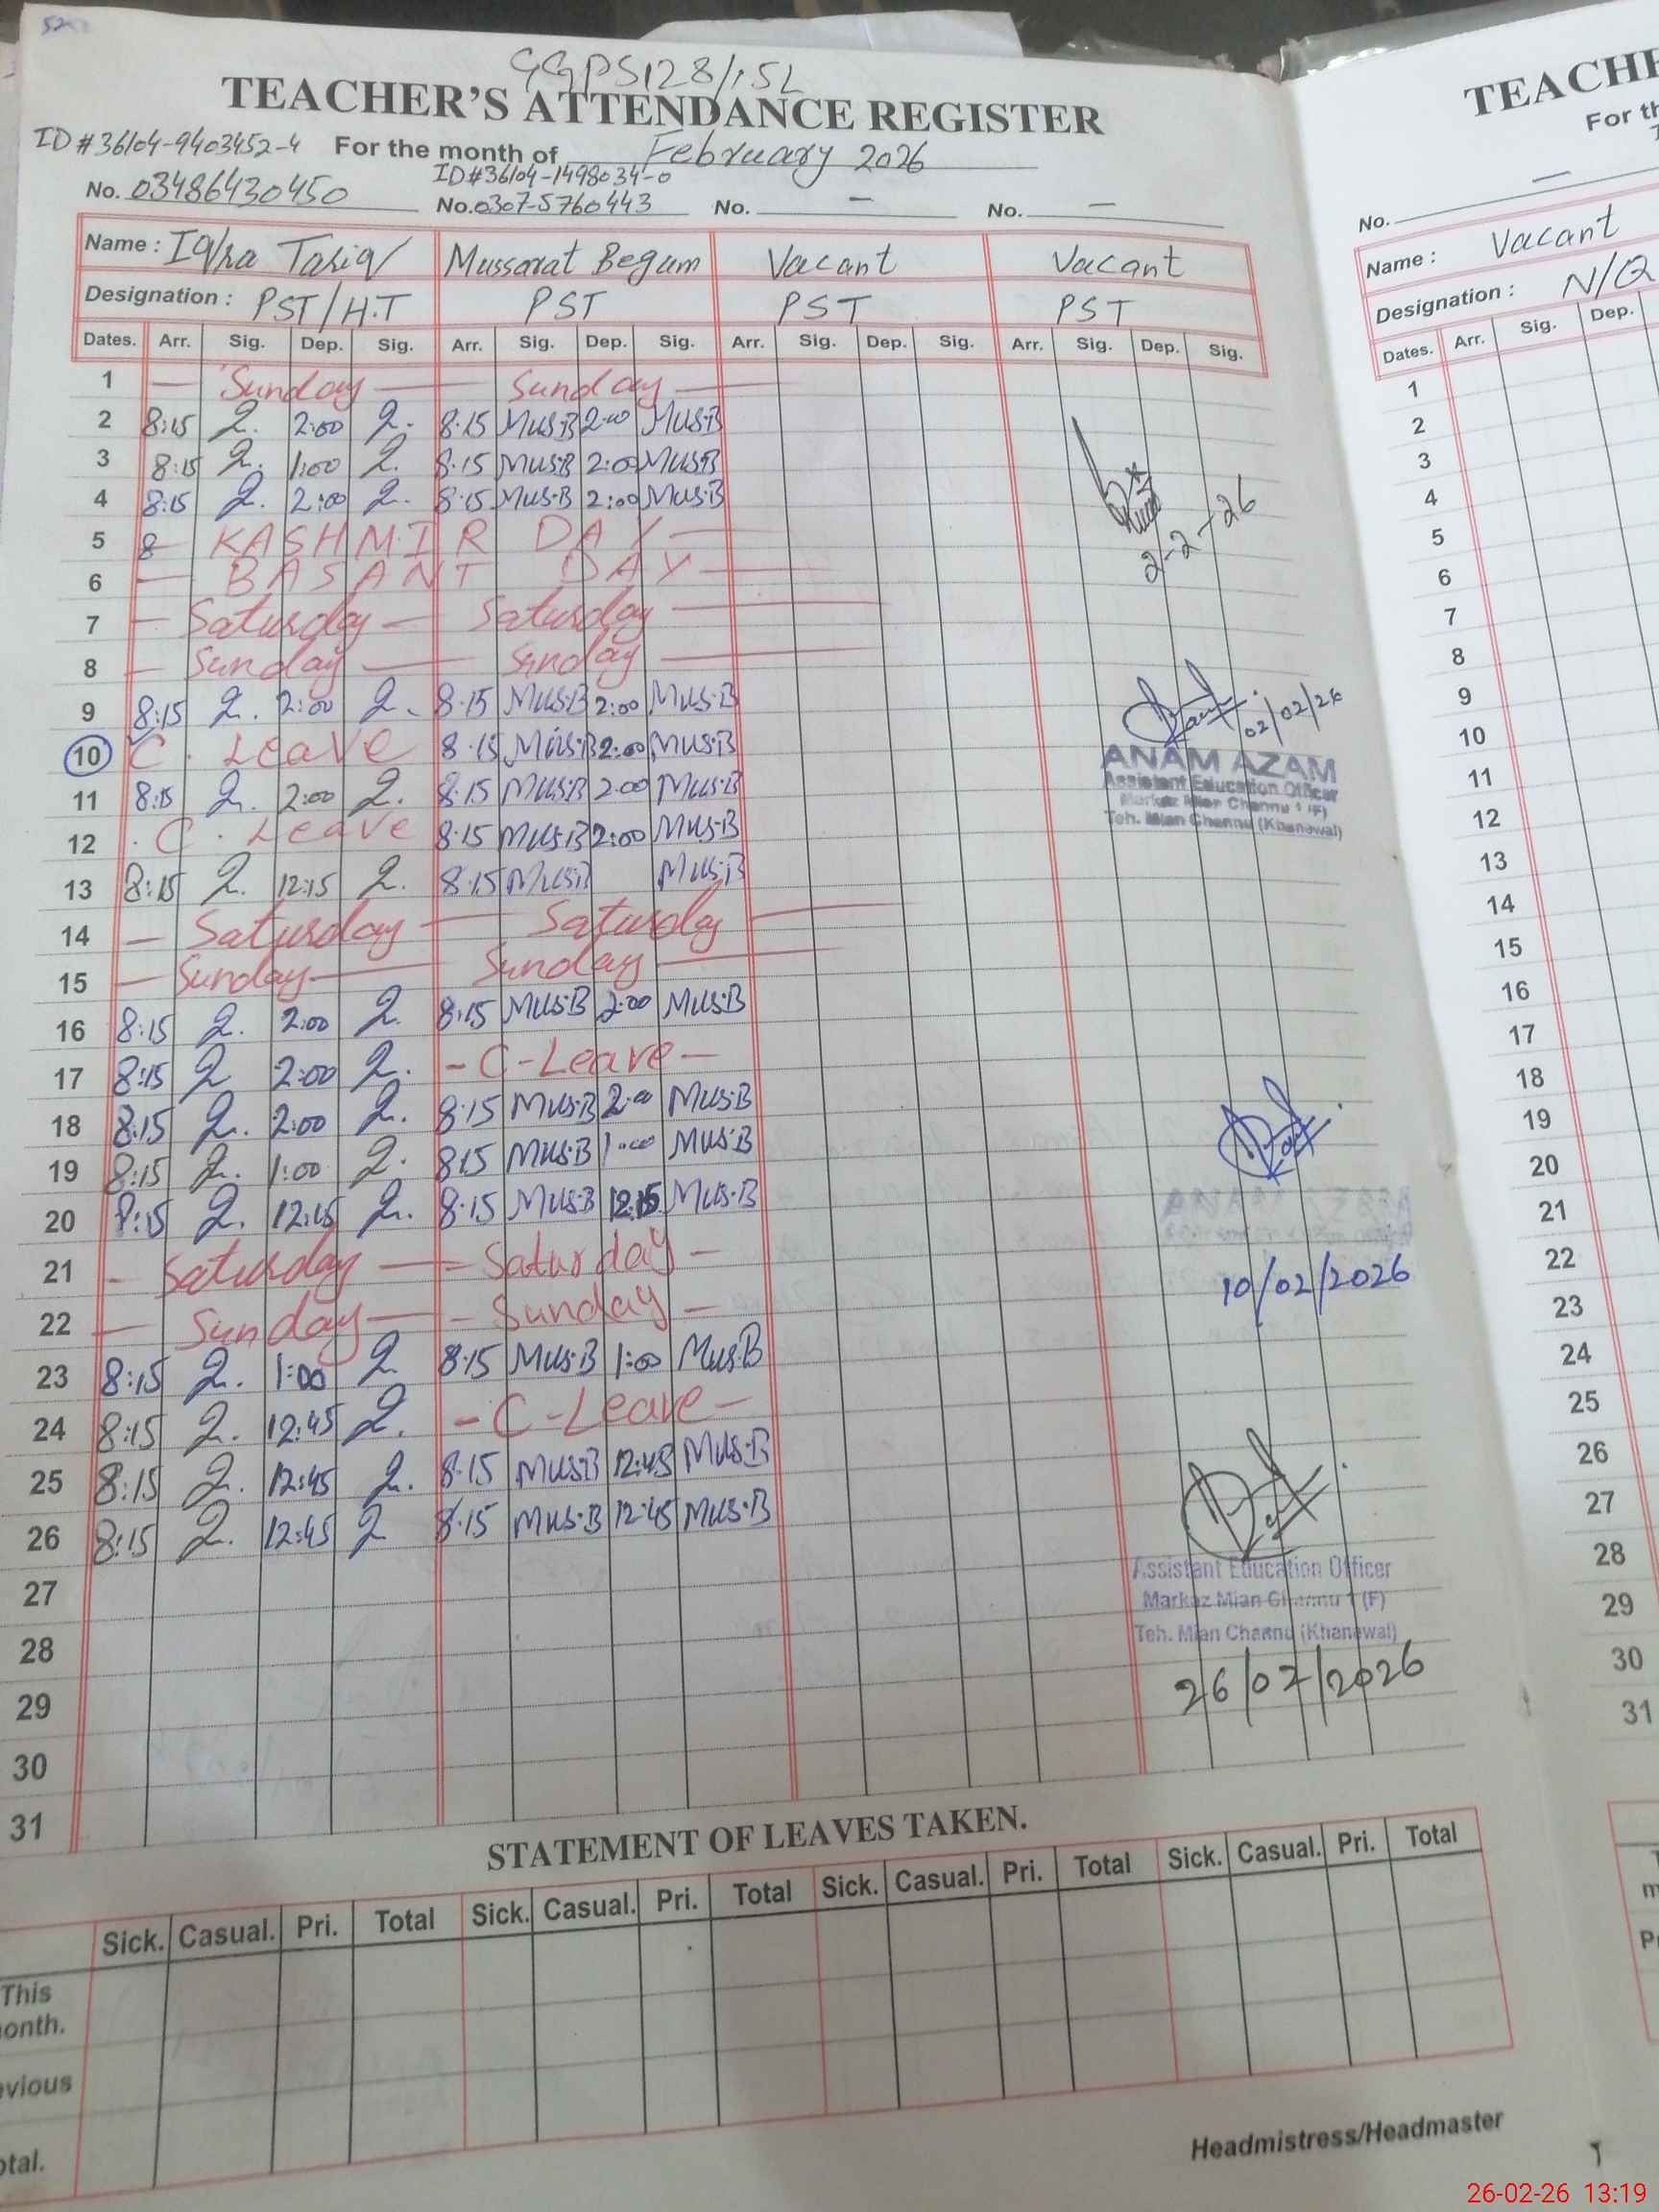 GGPS128/15L
TEACHER'S ATTENDANCE REGISTER
ID # 36104-9403452-4 For the month of February 2026
ID#36104-1498034-0
No. 03486430450 No.0307-5760443 No. — No. —
Name : Iqra Tariq Mussarat Begum Vacant Vacant
Designation : PST/H.T PST PST PST
Dates. Arr. Sig. Dep. Sig. Arr. Sig. Dep. Sig. Arr. Sig. Dep. Sig. Arr. Sig. Dep. Sig.
1 — Sunday — Sunday —
2 8:15 2:00 8.15 Mus.B 2:00 Mus.B
3 8:15 1:00 8.15 Mus.B 2:00 Mus.B
4 8:15 2:00 8.15 Mus.B 2:00 Mus.B
2-2-26
5 8 KASHMIR DAY —
6 — BASANT DAY —
7 — Saturday — Saturday —
8 — Sunday — Sunday —
9 8:15 2:00 8.15 Mus.B 2:00 Mus.B
02/02/26
10 C. Leave 8.15 Mus.B 2:00 Mus.B
ANAM AZAM
Assistant Education Officer
Markaz Mian Channu 1 (F)
Teh. Mian Channu (Khanewal)
11 8:15 2:00 8.15 Mus.B 2.00 Mus.B
12 C. Leave 8.15 Mus.B 2:00 Mus.B
13 8:15 12:15 8.15 Mus.B Mus.B
14 — Saturday — Saturday —
15 — Sunday — Sunday —
16 8:15 2:00 8.15 Mus.B 2:00 Mus.B
17 8:15 2:00 - C-Leave -
18 8:15 2:00 8.15 Mus.B 2:00 Mus.B
19 8:15 1:00 8.15 Mus.B 1:00 Mus.B
20 8:15 12:15 8.15 Mus.B 12:15 Mus.B
21 - Saturday — Saturday -
10/02/2026
22 — Sunday — Sunday -
23 8:15 1:00 8.15 Mus.B 1:00 Mus.B
24 8:15 12:45 - C-Leave -
25 8:15 12:45 8.15 Mus.B 12:45 Mus.B
26 8:15 12:45 8.15 Mus.B 12:45 Mus.B
27
Assistant Education Officer
Markaz Mian Channu 1 (F)
Teh. Mian Channu (Khanewal)
28
26/02/2026
29
30
31
STATEMENT OF LEAVES TAKEN.
Sick. Casual. Pri. Total Sick. Casual. Pri. Total Sick. Casual. Pri. Total Sick. Casual. Pri. Total
This
onth.
evious
otal.
Headmistress/Headmaster
TEACHE
For th
No. —
Name : Vacant
Designation : N/Q
Dates. Arr. Sig. Dep.
1
2
3
4
5
6
7
8
9
10
11
12
13
14
15
16
17
18
19
20
21
22
23
24
25
26
27
28
29
30
31
26-02-26 13:19